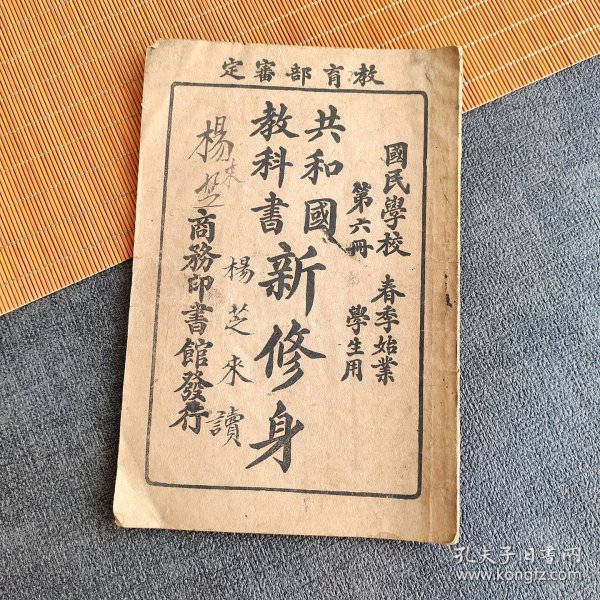 教育部審定
國民學校 春季始業
第六冊 學生用
共和國
教科書
新修身
楊芝來讀
商務印書館發行
楊芝
來
孔夫子旧书网
www.kongfz.com